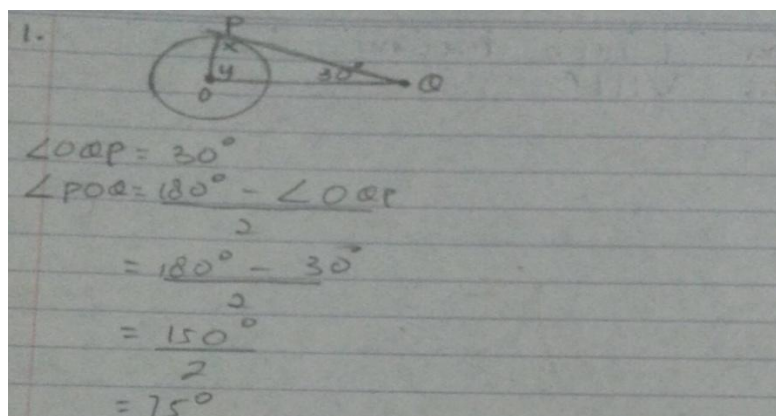 1.
P
x
y
30°
O
Q
∠OQP = 30°
∠POQ = 180° - ∠OQP
2
= 180° - 30°
2
= 150°
2
= 75°